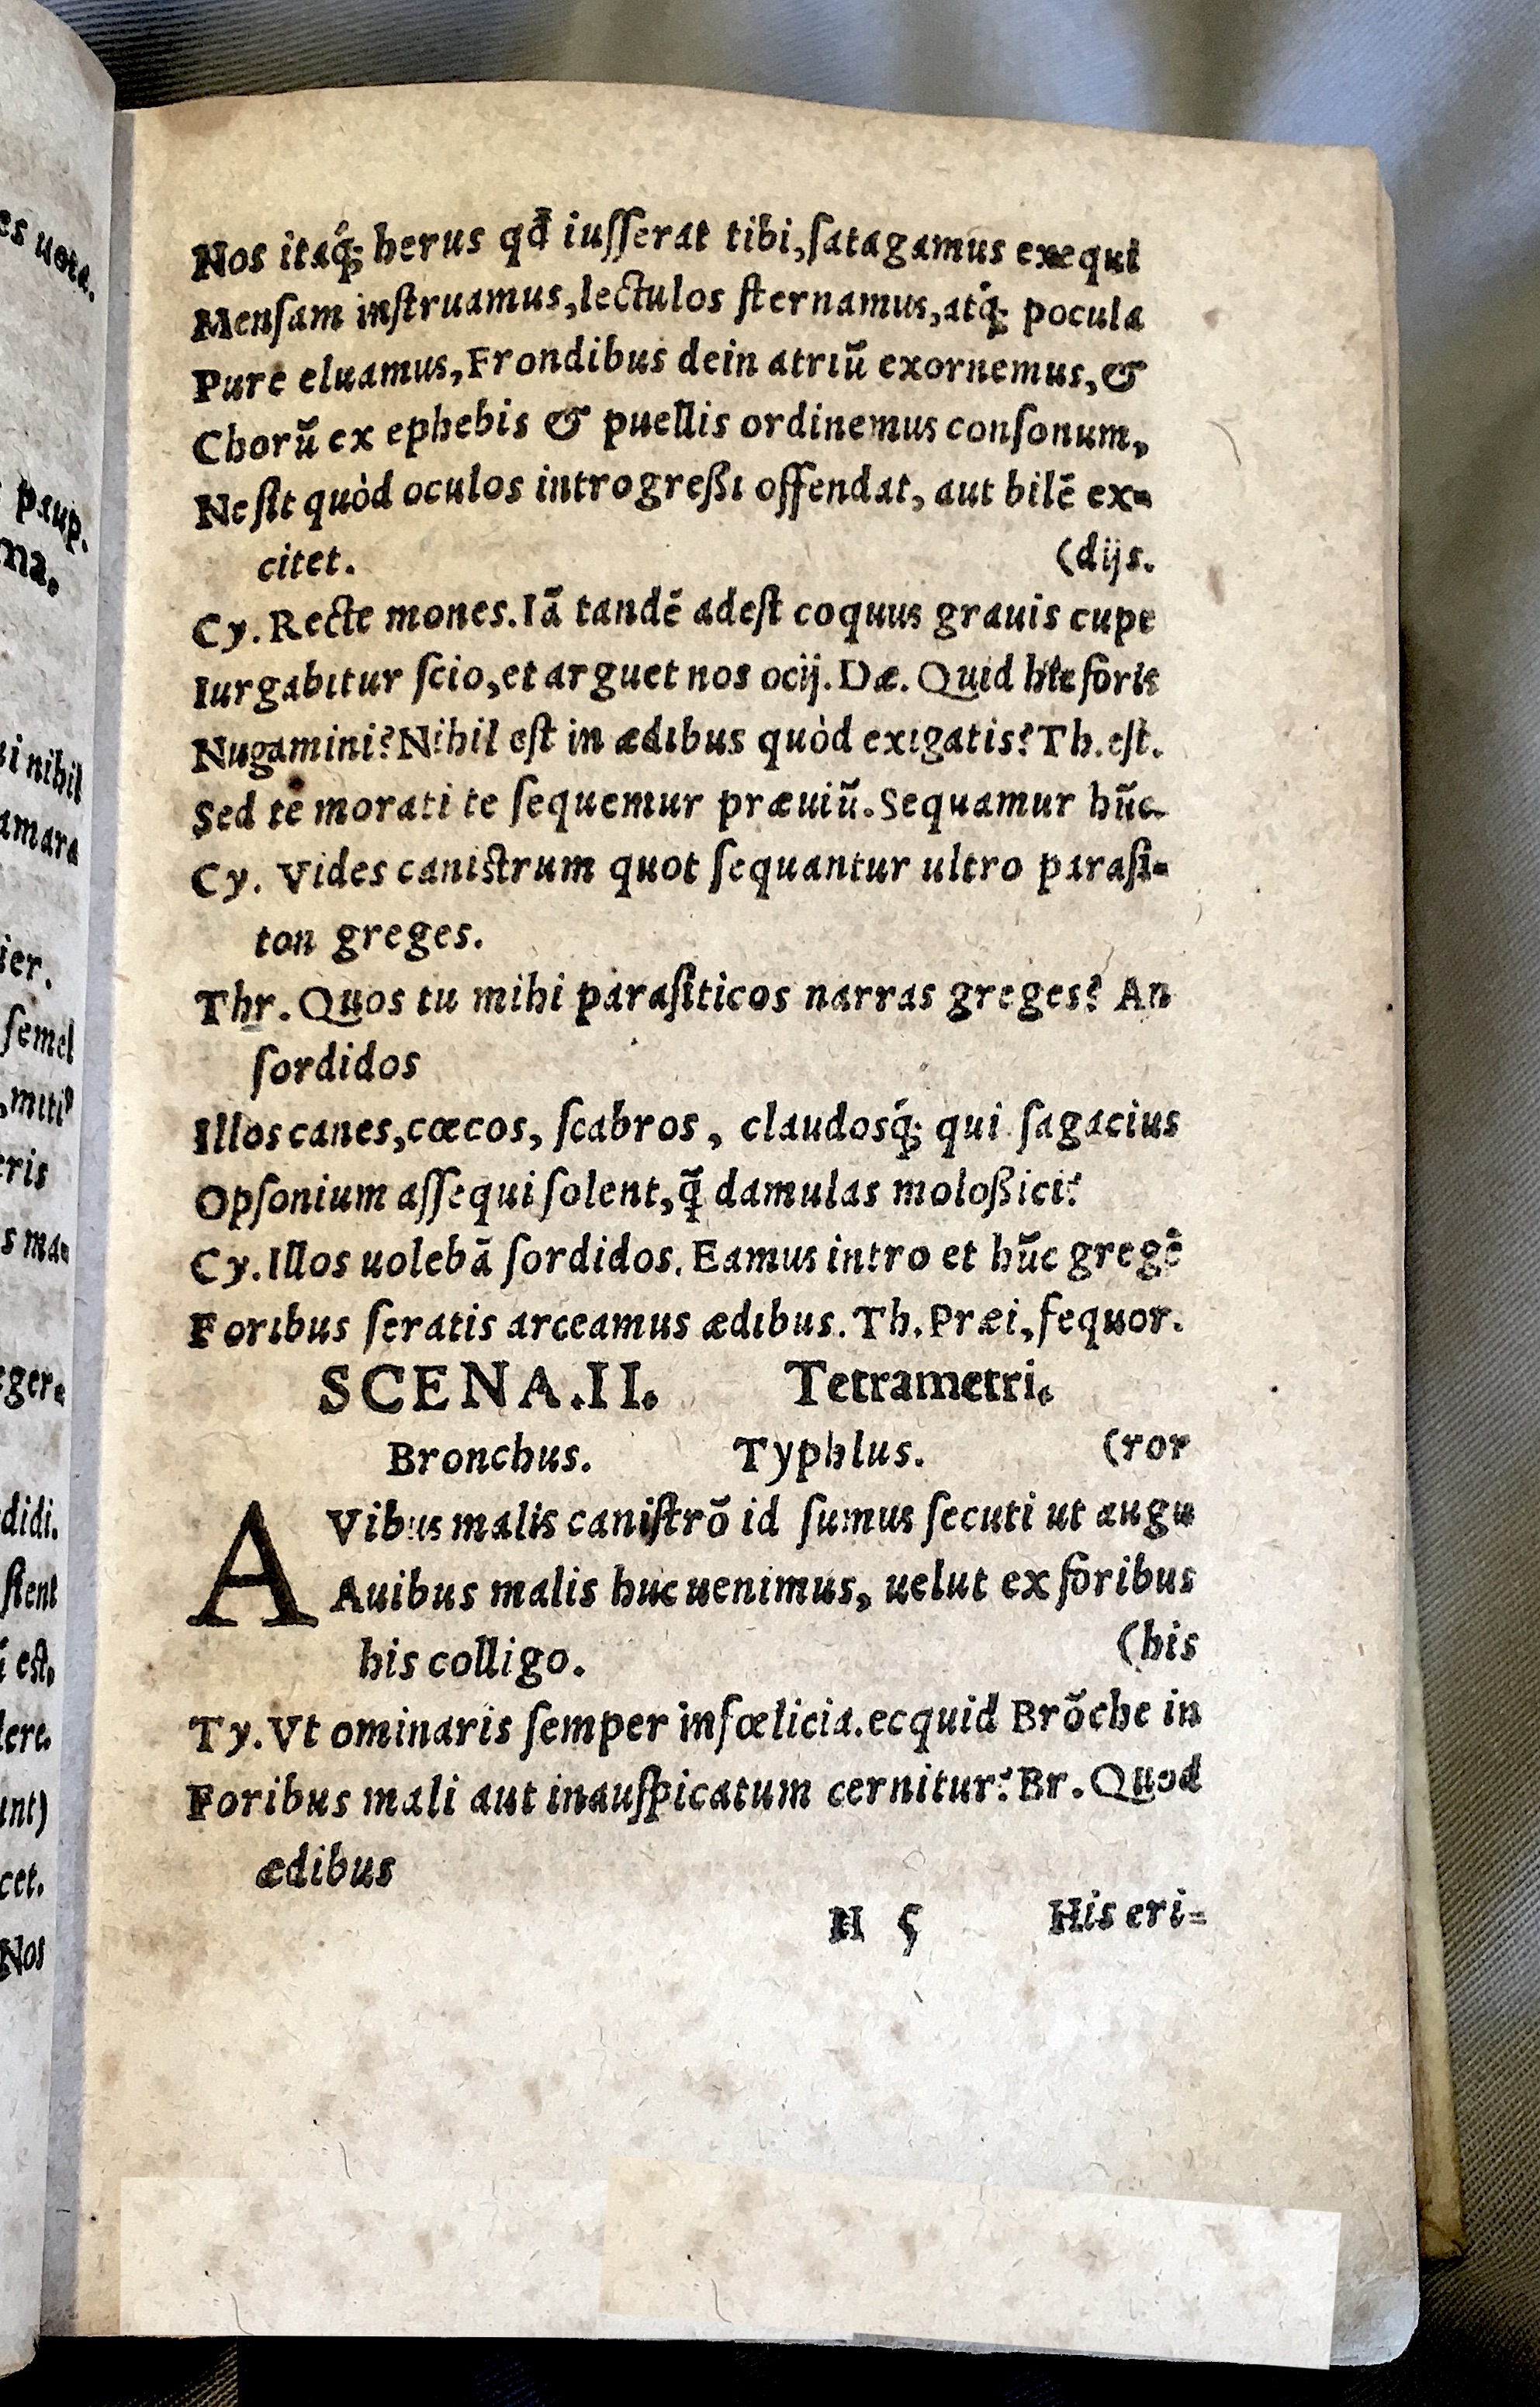 Nos itaq́ꝫ herus qđ iuſſerat tibi, ſatagamus exequi
Menſam inſtruamus, lectulos ſternamus, atq́ꝫ pocula
Pure eluamus, Frondibus dein atriũ exornemus, &
Chorũ ex ephebis & puellis ordinemus conſonum,
Ne ſit quòd oculos introgreßi offendat, aut bilẽ ex=
citet. (dijs.
Cy. Recte mones. Iã tandẽ adeſt coquus grauis cupe
Iurgabitur ſcio, et arguet nos ocij. Dæ. Quid foris
Nugamini? Nihil eſt in ædibus quòd exigatis? Th. eſt.
Sed te morati te ſequemur præuiũ. Sequamur hũc.
Cy. Vides caniſtrum quot ſequantur ultro paraſi=
ton greges.
Thr. Quos tu mihi paraſiticos narras greges? An
ſordidos
Illos canes, cœcos, ſcabros, claudosq́ꝫ qui ſagacius
Opſonium aſſequi ſolent, q̃ damulas moloßici?
Cy. Illos uolebã ſordidos. Eamus intro et hũc gregẽ
Foribus ſeratis arceamus ædibus. Th. Præi, ſequor.
SCENA. II. Tetrametri.
Bronchus. Typhlus. (ror
AVibus malis caniſtrõ id ſumus ſecuti ut augu
Auibus malis huc uenimus, uelut ex foribus
his colligo. (his
Ty. Vt ominaris ſemper infœlicia. ecquid Brõche in
Foribus mali aut inauſpicatum cernitur? Br. Quod
ædibus
H 5 His eri=
es uota.
paup.
na.
i nihil
amara
ier.
ſemel
eris
s ma=
eger=
didi.
ſtent
eſt.
dere.
unt)
cet.
Nos